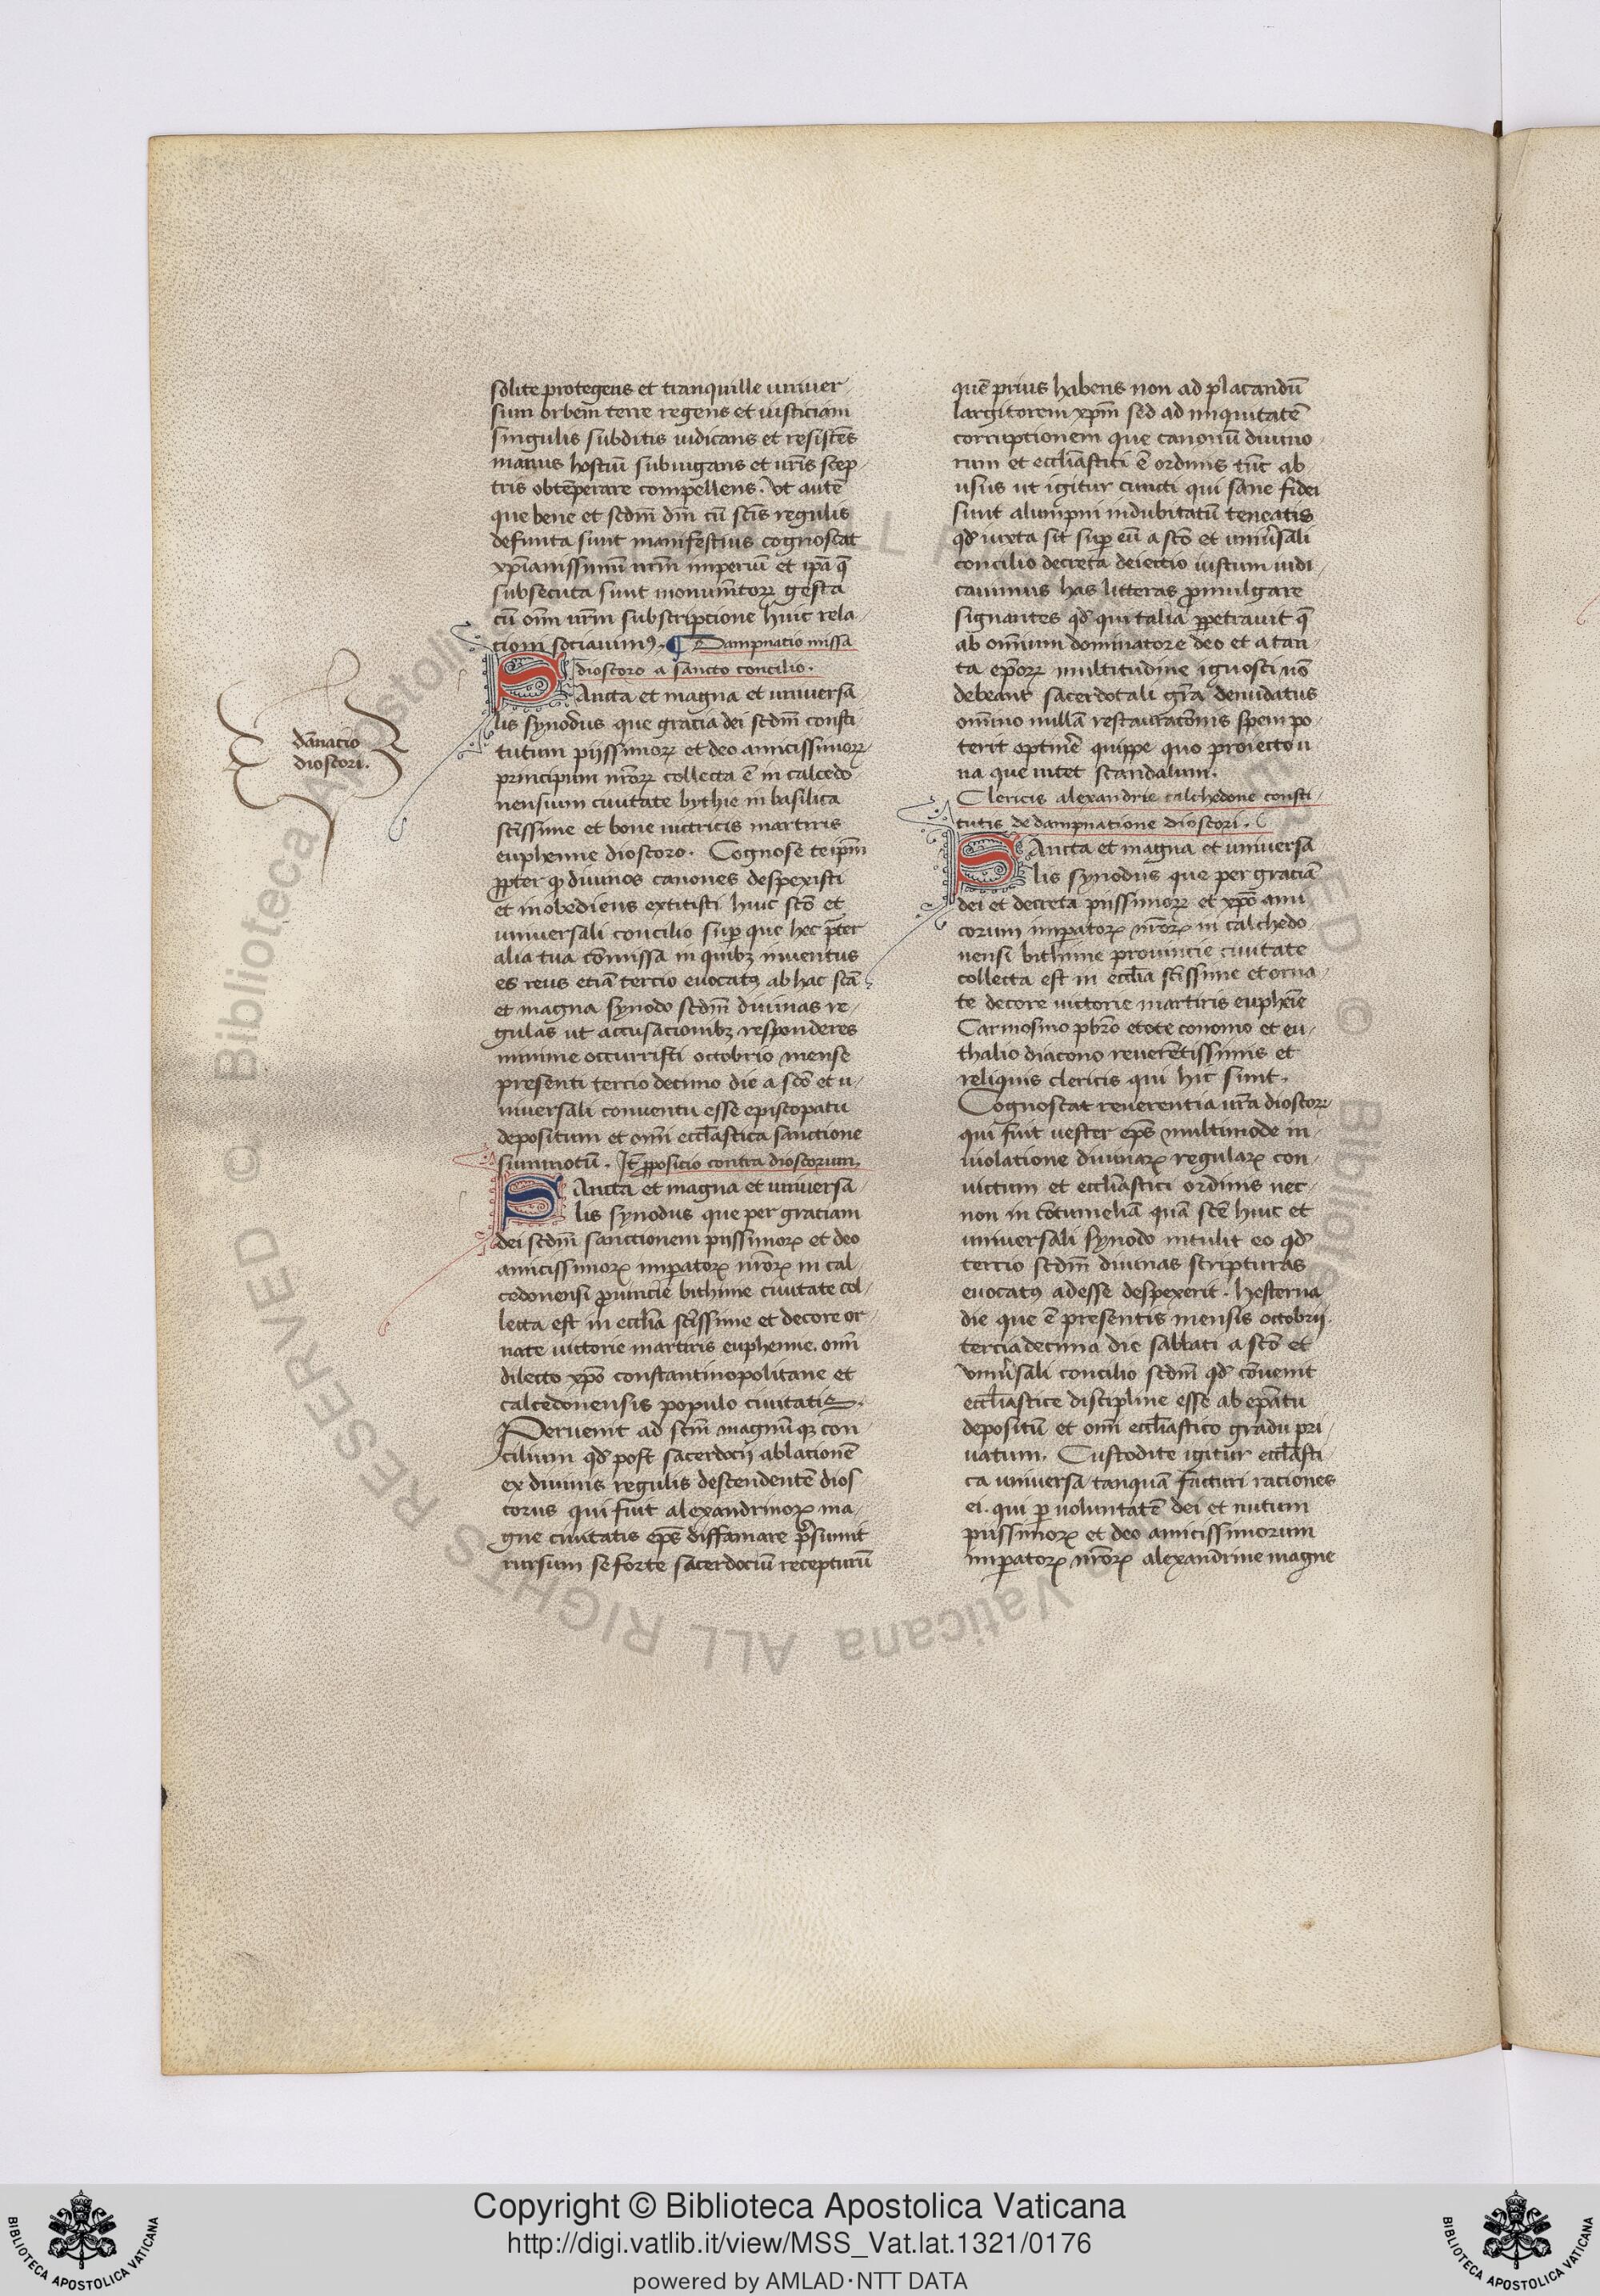 solite protegens et tranquille univer-
sum orbem terre regens et iusticiam
singulis subditis iudicans et resistẽs
manus hostiũ subiugans et vr̃is scep-
tris obtẽperare compellens. Ut autẽ
que bene et scdm̃ dm̃ cũ scĩs regulis
definita sunt manifestius cognoscat
xp̃ianissimũ vr̃m imperiũ et ip̃a q̃
subsecuta sunt monumẽtoꝝ gesta
cũ om̃i vr̃m subscripcione huic rela-
cioni sociauimꝰ. ¶ Dampnatio missa
dioscoro a sancto concilio.
SAncta et magna et universa-
lis synodus que gracia dei scdm̃ consti-
tutum piissimoꝝ et deo amicissimoꝝ
principum nr̃oꝝ collecta ẽ in calcedo-
nensium ciuitate bythie in basilica
scĩssime et bone victricis martiris
euphemie dioscoro. Cognosce teip̃m
ꝓpter ꝙ diuinos canones despexisti
et inobediens extitisti huic scõ et
uniuersali concilio suꝑ que hec p̃ter
alia tua cõmissa in quibꝫ inventus
es reus etiã tercio euocatꝰ ab hac scã
et magna synodo scdm̃ diuinas re-
gulas ut accusacionibꝫ responderes
minime occurristi octobrio mense
presenti tercio decimo die a scõ et u-
niuersali conuentu esse episcopatu
depositum et om̃i eccl̃iastica sanctione
summotũ. It̃ ꝓposicio contra dioscorum.
SAncta et magna et universa-
lis synodus que per graciam
dei scdm̃ sanctionem piissimoꝝ et deo
amicissimoꝝ imꝑatoꝝ nr̃oꝝ in cal-
cedonensi ꝓuincie bithinie ciuitate col-
lecta est in eccl̃ia scĩssime et decore or-
nate victorie martiris euphemie. om̃i
dilecto xp̃o constantinopolitane et
calcedonensis populo ciuitatis.
Peruenit ad scm̃ magnũqꝫ con-
cilium qđ post sacerdocii ablacionẽ
ex diuinis regulis descendentẽ dios-
corus qui fuit alexandrinoꝝ ma-
gne ciuitatis ep̃s diffamare p̃sumit
rursum se forte sacerdociũ recepturũ
dãnacio
dioscori.
quẽ prius habens non ad placandũ
largitorem xp̃m sed ad iniquitatẽ
corruptionem que canonũ diuino-
rum et eccl̃iastici ẽ ordinis tũc ab-
usus ut igitur cuncti qui sane fidei
sunt alumpni indubitatũ teneatis
qđ iuxta sit suꝑ eũ a scõ et uniũsali
concilio decreta deiectio iustum iudi-
cauimus has litteras ꝓmulgare
signantes qđ qui talia ꝑpetrauit q̃
ab omnium dominatore deo et a tan-
ta ep̃oꝝ multitudine ignosci nõ
debeant sacerdotali gr̃a denudatus
omnino nullã restauratõnis spem po-
terit optinẽ quippe quo proiecto u-
na que vitet scandalum.
Clericis alexandrie calchedone consti-
tutis de dampnatione dioscori.
SAncta et magna et universa
lis synodus que per graciã
dei et decreta piissimoꝝ et xp̃o ami-
corum imꝑatoꝝ nr̃oꝝ in calchedo-
nensi bithinie prouincie ciuitate
collecta est in eccl̃ia scĩssime et orna-
te decore victorie martiris euphẽie
Carmosino pb̃ro et ote conomo et eu-
thalio diacono reuerẽtissimis et
reliquis clericis qui hic sunt.
Cognoscat reuerentia vr̃a dioscoꝝ
qui fuit uester ep̃s multimode in
uiolatione diuinaꝝ regulaꝝ con-
uictum et eccl̃iastici ordinis nec-
non in cõtumeliã quã scẽ huic et
uniuersali synodo intulit eo qđ
tercio scdm̃ diuinas scripturas
euocatꝰ adesse despexerit. hesterna
die que ẽ presentis mensis octobrii.
tercia decima die sabbati a scõ et
uniũsali concilio scdm̃ qđ cõuenit
eccl̃iastice discipline esse ab ep̃atu
depositũ et om̃i eccl̃iastico gradu pri-
uatum. Custodite igitur eccl̃iasti-
ca universa tanquã facturi raciones
ei. qui ꝑ uoluntatẽ dei et nutum
piissimoꝝ et deo amicissimorum
imꝑatoꝝ nr̃oꝝ alexandrine magne
Copyright © Biblioteca Apostolica Vaticana
http://digi.vatlib.it/view/MSS_Vat.lat.1321/0176
powered by AMLAD·NTT DATA
BIBLIOTECA APOSTOLICA VATICANA
BIBLIOTECA APOSTOLICA VATICANA